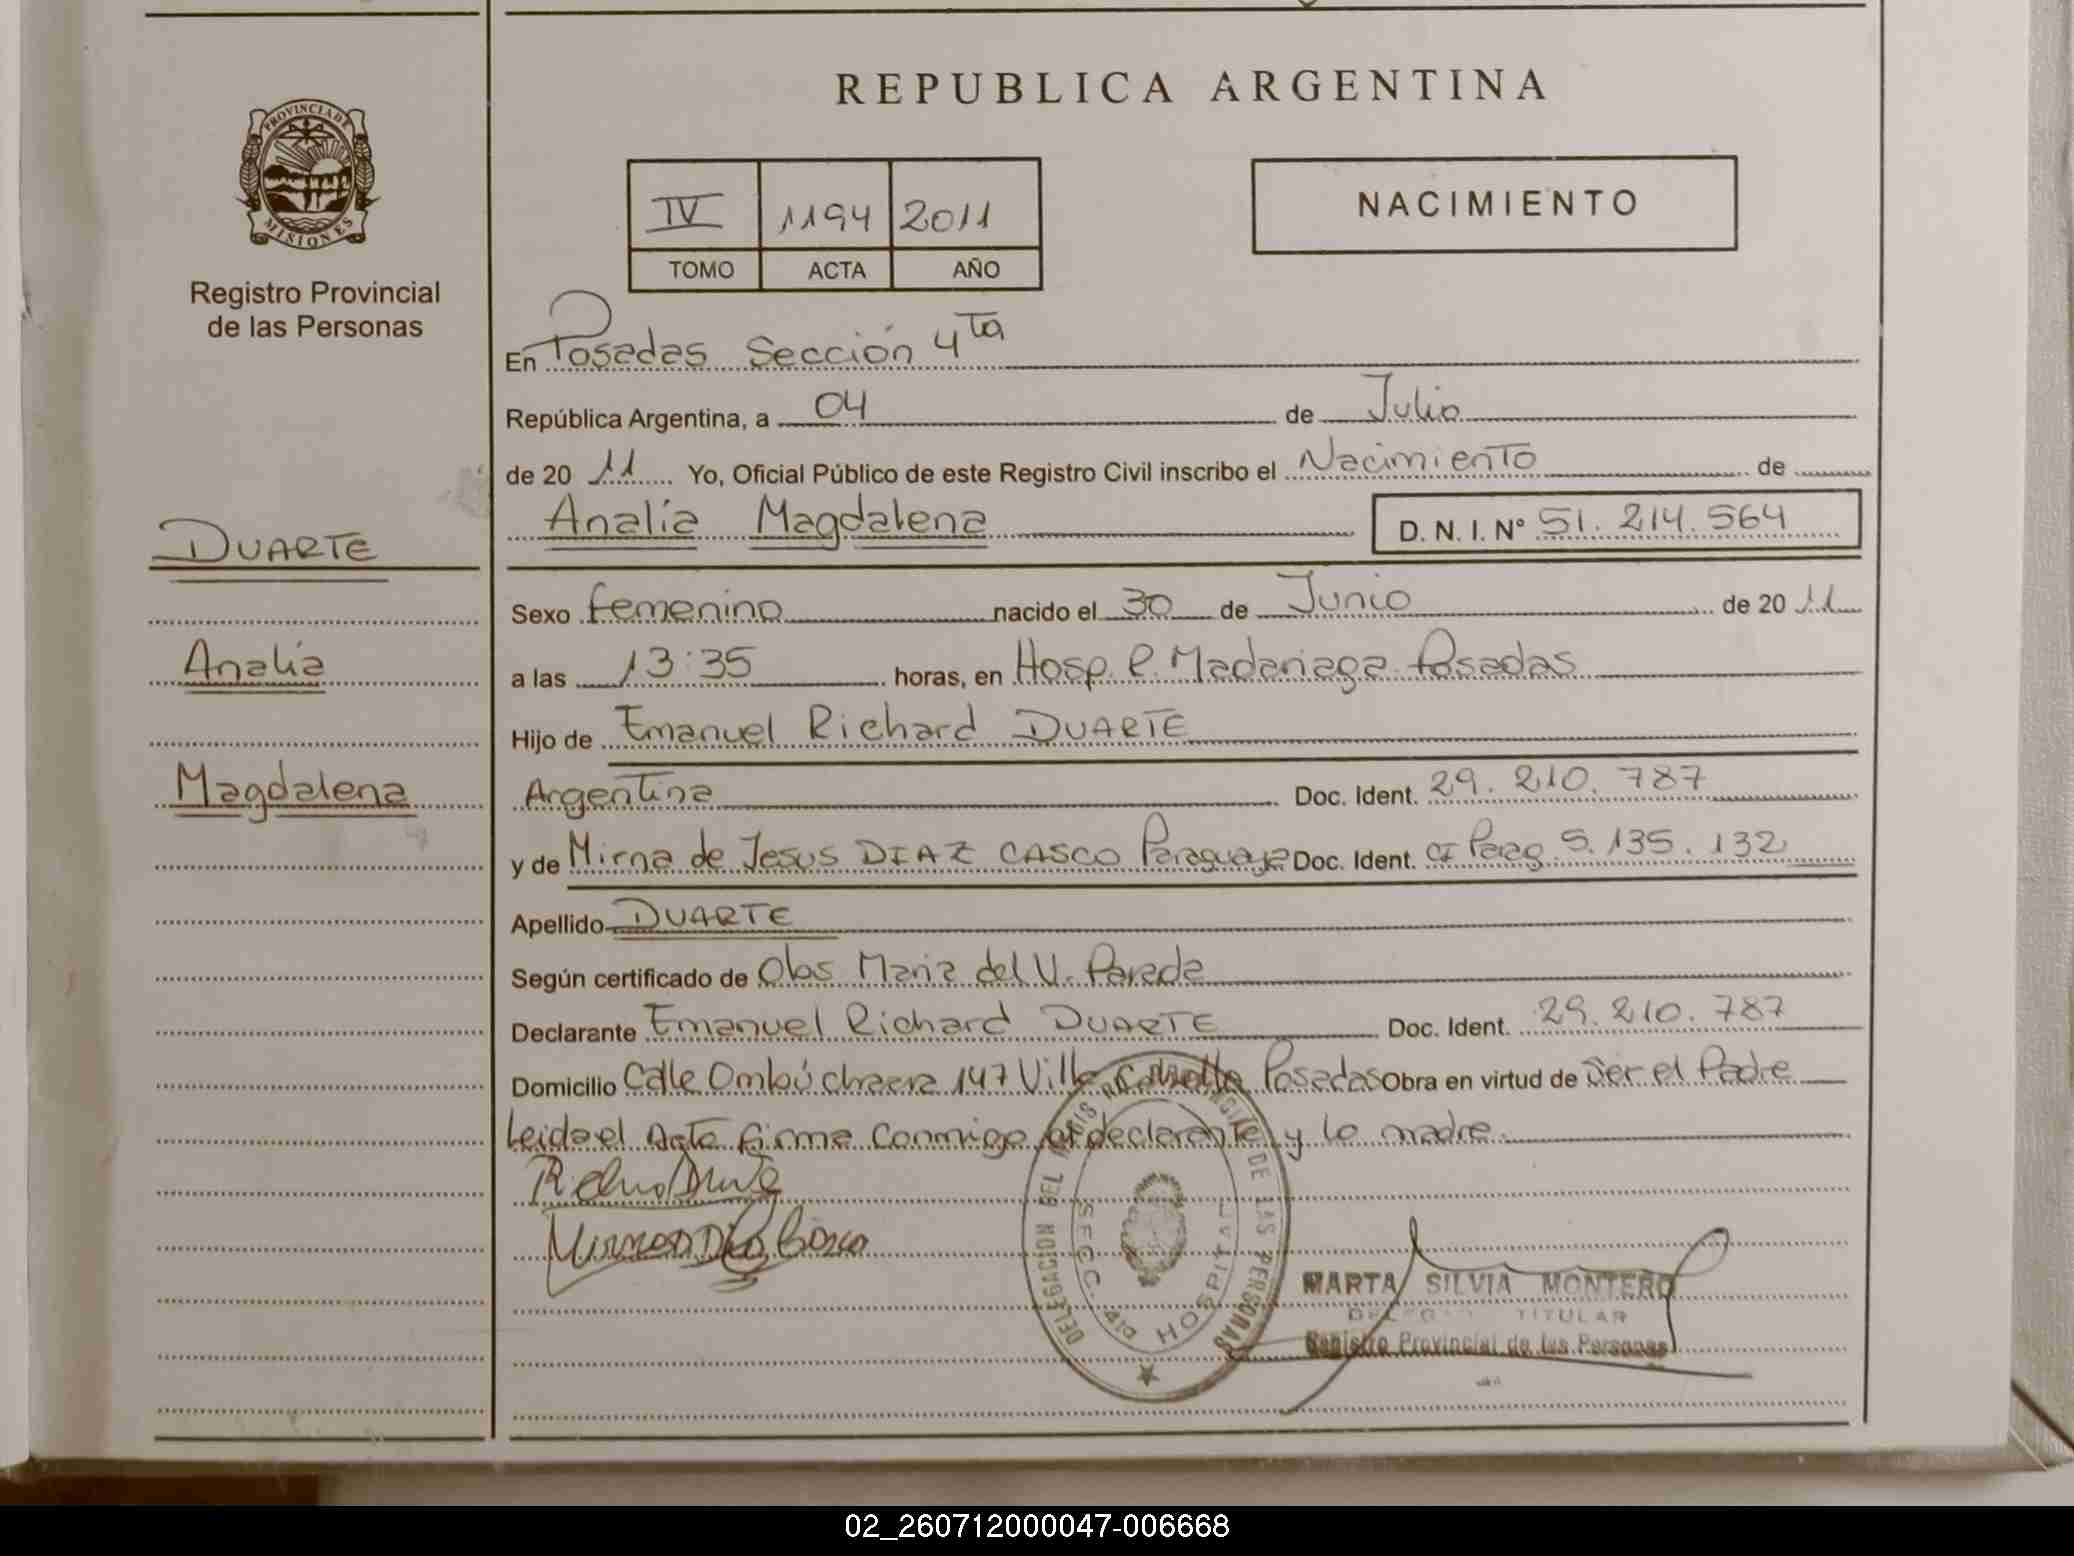 REPUBLICA ARGENTINA
PROVINCIA DE MISIONES
Registro Provincial
de las Personas
IV 1194 2011
TOMO ACTA AÑO
NACIMIENTO
En Posadas Sección 4ta
República Argentina, a 04 de Julio
de 20 11 Yo, Oficial Público de este Registro Civil inscribo el Nacimiento de
Analía Magdalena D. N. I. N° 51.214.564
DUARTE
Analía
Magdalena
Sexo femenino nacido el 30 de Junio de 20 11
a las 13:35 horas, en Hosp. R. Madariaga Posadas
Hijo de Emanuel Richard DUARTE
Argentina Doc. Ident. 29.210.787
y de Mirna de Jesus DIAZ CASCO Paraguaya Doc. Ident. CI Parag 5.135.132
Apellido DUARTE
Según certificado de Obs Maria del V. Pareda
Declarante Emanuel Richard DUARTE Doc. Ident. 29.210.787
Domicilio Calle Ombú chacra 147 Villa Posadas Obra en virtud de Ser el Padre
Leida el Acta firma conmigo el declarante y la madre
DELEGACION DEL REGISTRO PROVINCIAL DE LAS PERSONAS
SECC. 4ta HOSPITAL
MARTA SILVIA MONTERO
TITULAR
Registro Provincial de las Personas
02_260712000047-006668